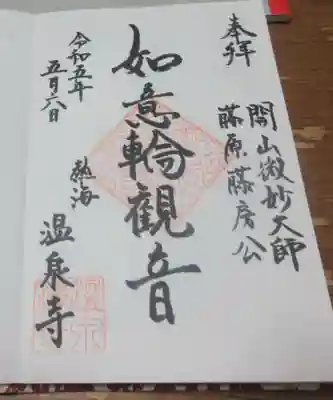 奉拝
開山微妙大師
藤原藤房公
如意輪観音
熱海
温泉寺
令和五年
五月六日